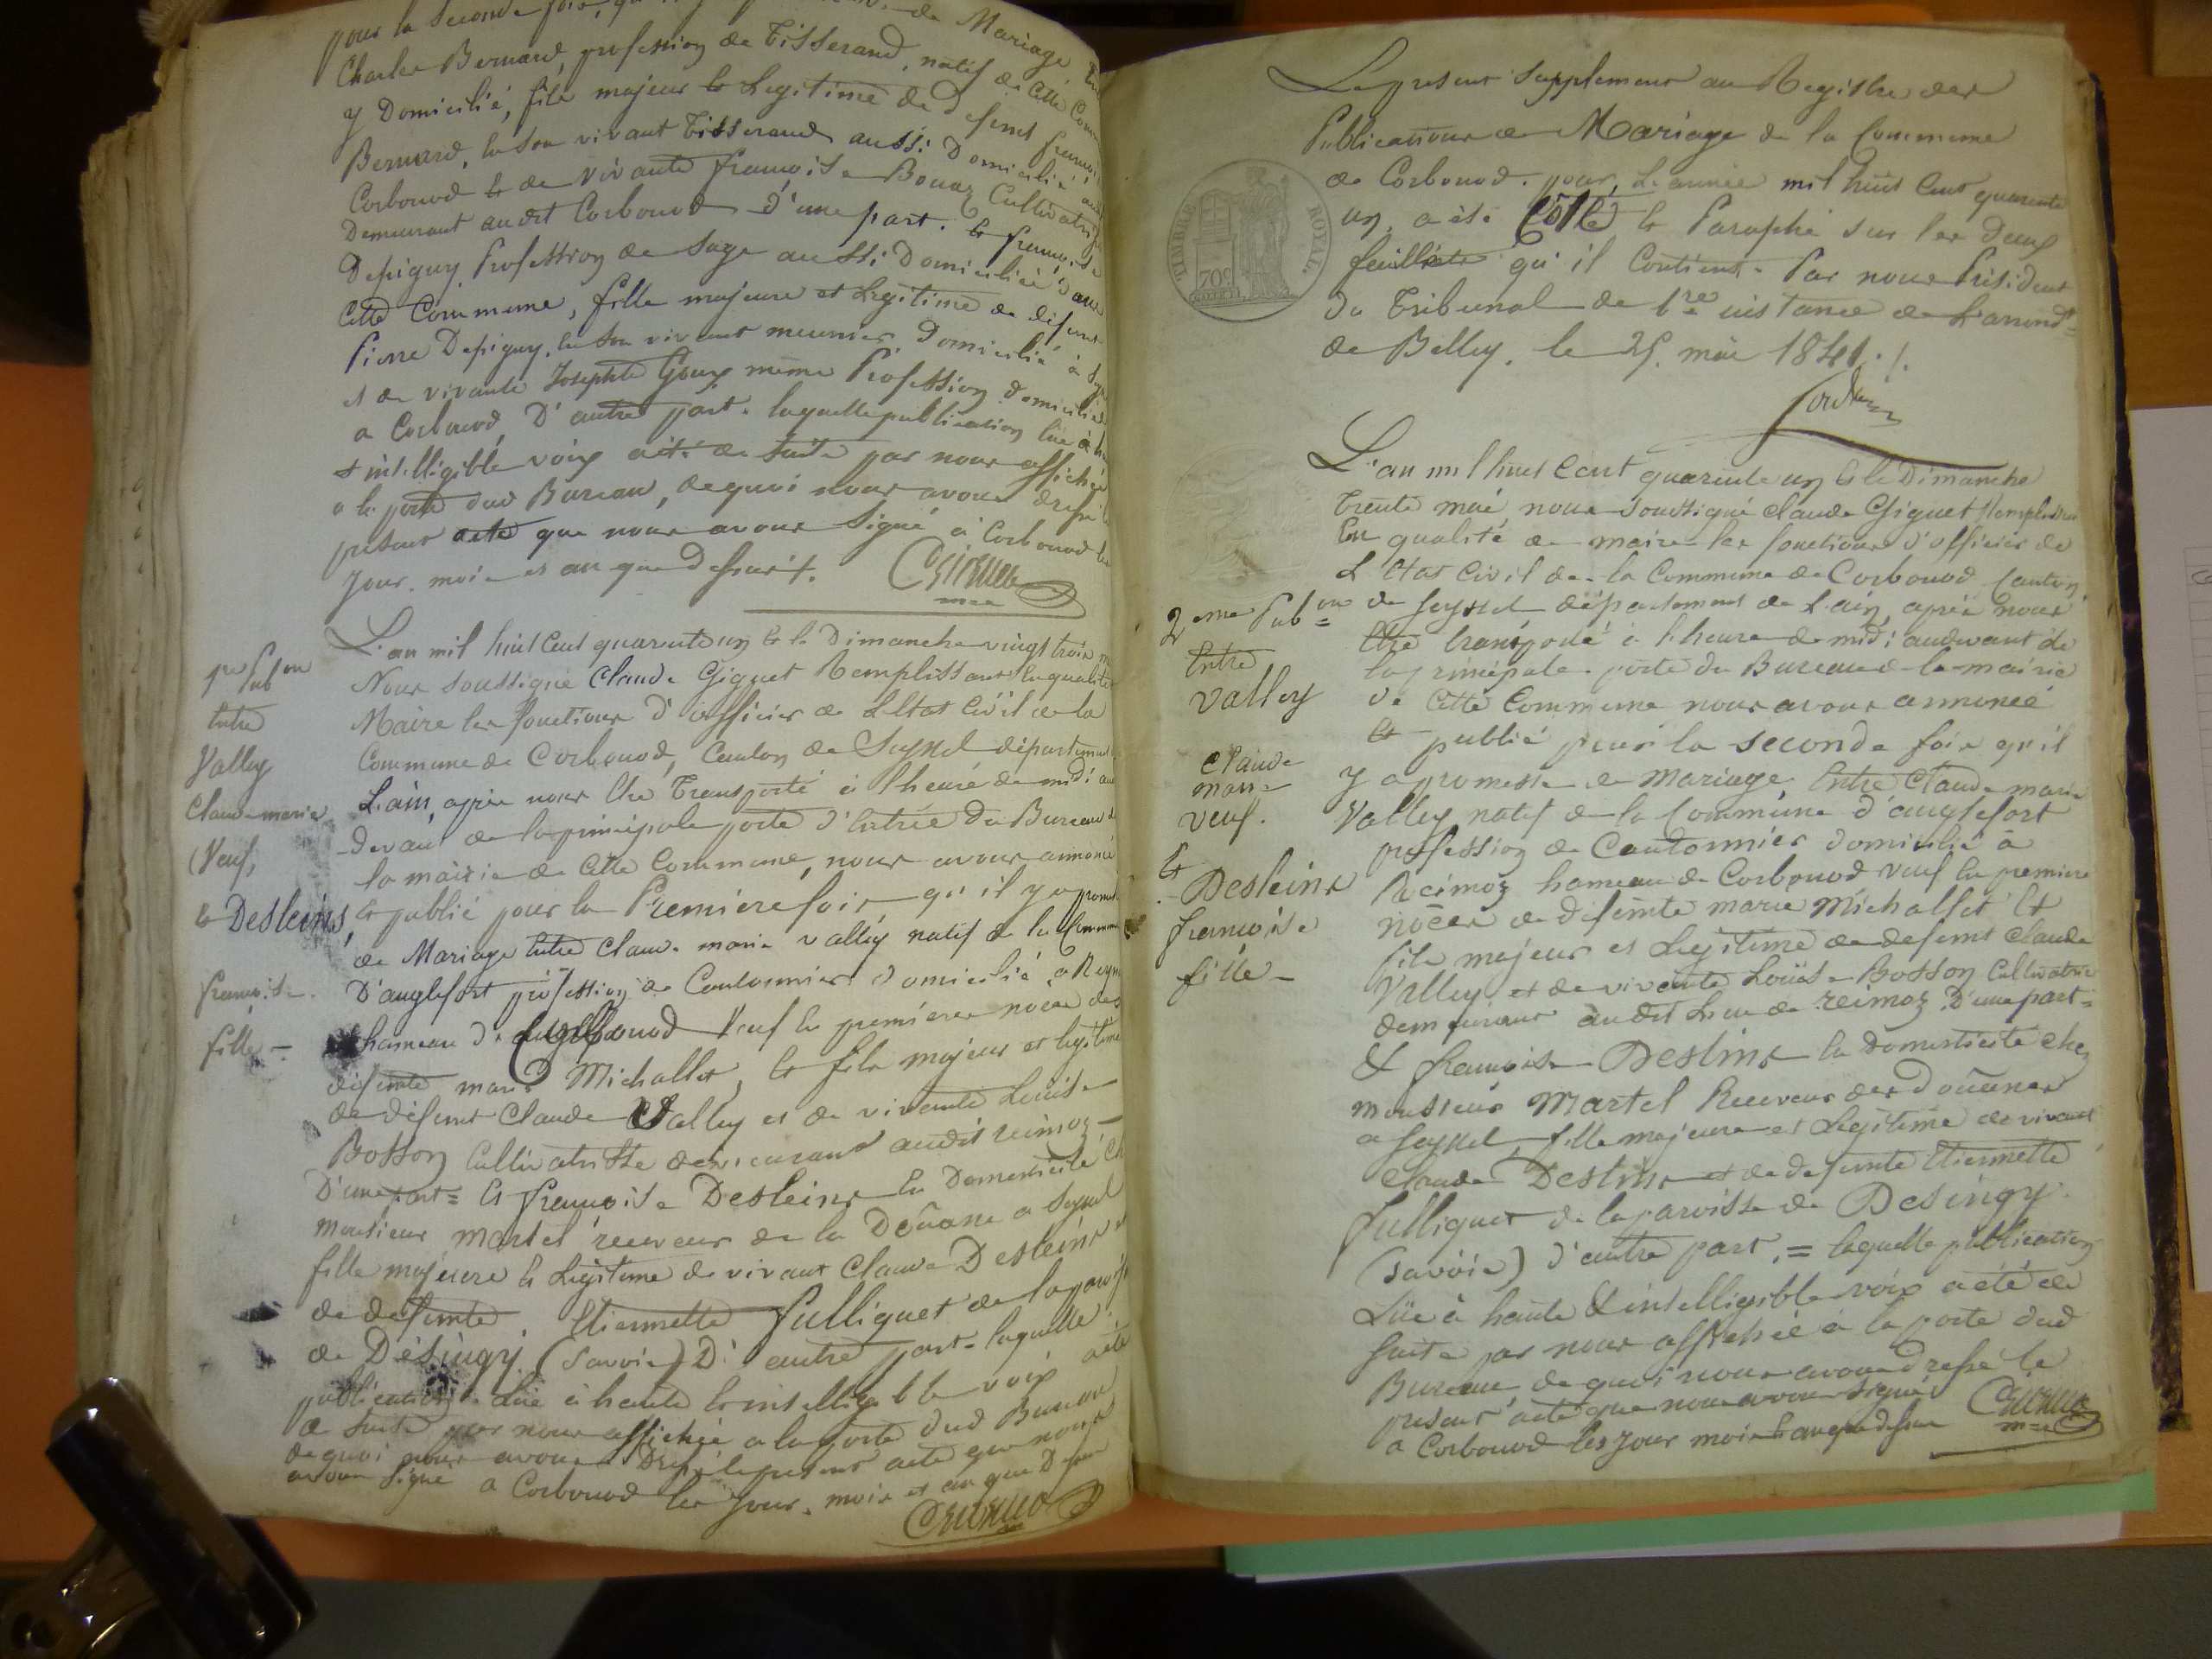 pour la seconde fois, qu'il y a promesse de Mariage
Charles Bernard, profession de Tisserand, natif de cette Com
y Domicilié, fils majeur et Legitime de defunt françois
Bernard, en son vivant Tisserand aussi Domicilié audit
Corbonod et de vivante françoise Bouaz Cultivatrice
Demeurant audit Corbonod d'une part. et françoise
Depigny Profession de Sage aussi Domiciliée dans
Cette Commune, fille majeure et Legitime de defunt
Pierre Depigny, en son vivant meunier, Domicilié à
et de vivante Josephte Goux même Profession domiciliée
a Corbonod D'autre part. laquelle publication lue à
& intelligible voix a été de suite par nous affichée
a la porte dud Bureau, de quoi nous avons dressé le
présent acte que nous avons signé à Corbonod les
Jour, mois et an que dessus.
Giguet
L'an mil huit Cent quarante un et le Dimanche vingt trois
Nous soussigné Claude Giguet Remplissant en qualité
Maire les fonctions d'officier de L'Etat Civil de la
Commune de Corbonod, Canton de Seyssel département
L'ain, après nous être Transporté à l'heure de midi au
devant de la principale porte d'entrée du Bureau de
la mairie de Cette Commune, nous avons annoncé
et publié pour la Premiere fois qu'il y a promesse
de Mariage entre Claude marie valley natif de la Commune
D'anglefort profession de Cantonnier domicilié à
hameau de Corbonod Veuf en premières noces de
défunte marie Michallet, et fils majeur et legitime
de défunt Claude Valley et de vivante Louise
Bosson Cultivatrisse demeurant audit reimoz
D'une part = et françoise Desleins en Domesticité ch
Monsieur Martel receveur de la Douane a Seyssel
fille majeure et Legitime de vivant Claude Desleins et
de defunte Etiennette fulliquet de la paroisse
de Désingy (Savoie) D'autre part. laquelle
publication Lüe à haute et intelligible voix a été
de suite par nous affichée a la porte dud Bureau
de quoi nous avons Dressé le présent acte que nous
avons signé a Corbonod les Jour, mois et an que Dessus
Giguet
1re Pubon
Entre
Valley
Claude marie
(Veuf,
et Desleins,
françoise
fille =
Le present Supplement au Registre des
Publications de Mariage de la Commune
de Corbonod. pour L'année mil huit Cent quarante
un, a été Côté et Paraphé sur les deux
feuillets qu'il Contient. Par nous Président
du Tribunal de 1re instance de L'arrondt
de Belley. le 25 mai 1841./.
TIMBRE ROYAL.
70c
L'an mil huit Cent quarante un et le Dimanche
trente mai nous soussigné Claude Giguet Remplissan
En qualité de maire les fonctions d'officier de
L'Etat Civil de la Commune de Corbonod Canton
de Seyssel département de L'ain, après nous
être transporté à l'heure de midi audevant de
la principale porte du Bureau de la mairie
de Cette Commune nous avons annoncé
et publié pour la seconde fois qu'il
y a promesse de Mariage Entre Claude marie
Valley natif de la Commune d'anglefort
profession de Cantonnier domicilié à
Reimoz hameau de Corbonod veuf en premiere
nôces de defunte marie Michallet et
fils majeur et Legitime de defunt Claude
Valley et de vivante Louise Bosson Cultivatrice
demeurant audit Lieu de reimoz D'une part =
& françoise Deslins en domesticité chez
monsieur Martel Receveur des douanes
a Seyssel, fille majeure et Legitime de vivant
Claude Deslins et de defunte Etiennette
fulliquet de la paroisse de Desingy
(Savoie) d'autre part, = laquelle publication
Lüe à haute & intelligible voix a été de
suite par nous affichée à la porte dud
Bureau de quoi nous avons dressé le
présent acte que nous avons signé
a Corbonod les jour mois et an que dessus
Giguet
2eme Pubon
Entre
Valley
Claude
marie
veuf.
Et
Desleins
françoise
fille